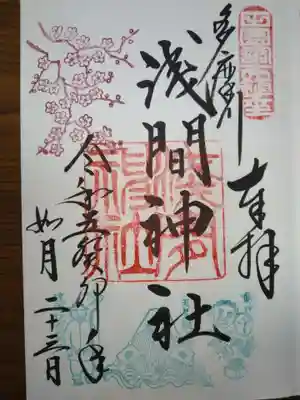 奉拝
多摩川
浅間神社
令和五癸卯年
如月 二十三日